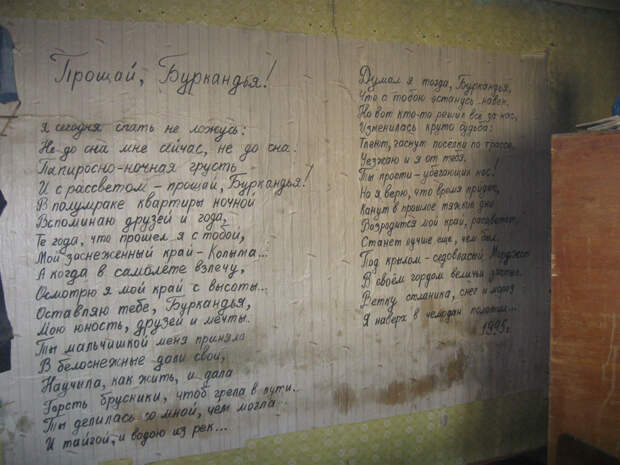 Прощай, Буркандья!
Я сегодня спать не ложусь:
Не до сна мне сейчас, не до сна.
Папиросно-ночная грусть
И с рассветом – прощай, Буркандья!
В полумраке квартиры ночной
Вспоминаю друзей и года,
Те года, что прошел я с тобой,
Мой заснеженный край – Колыма...
А когда в самолёте взлечу,
Осмотрю я мой край с высоты...
Оставляю тебе, Буркандья,
Мою юность, друзей и мечты.
Ты мальчишкой меня приняла
В белоснежные дали свои,
Научила, как жить, и дала
Горсть брусники, чтоб грела в пути.
Ты делилась со мной, чем могла
И тайгой, и водою из рек...
Думал я тогда, Буркандья,
Что с тобою останусь навек.
Но вот кто-то решил всё за нас,
Изменилась круто судьба:
Тлеют, гаснут поселки по трассе,
Уезжаю и я от тебя.
Ты прости – убегающих нас!
Но я верю, что время придет,
Канут в прошлое тяжкие дни
Возродится мой край, расцветет,
Станет лучше еще, чем был.
Под крылом – седовласый
В своём гордом величьи
Ветку стланика, снег и мороз
Я наверх в чемодан положил...
1995г.